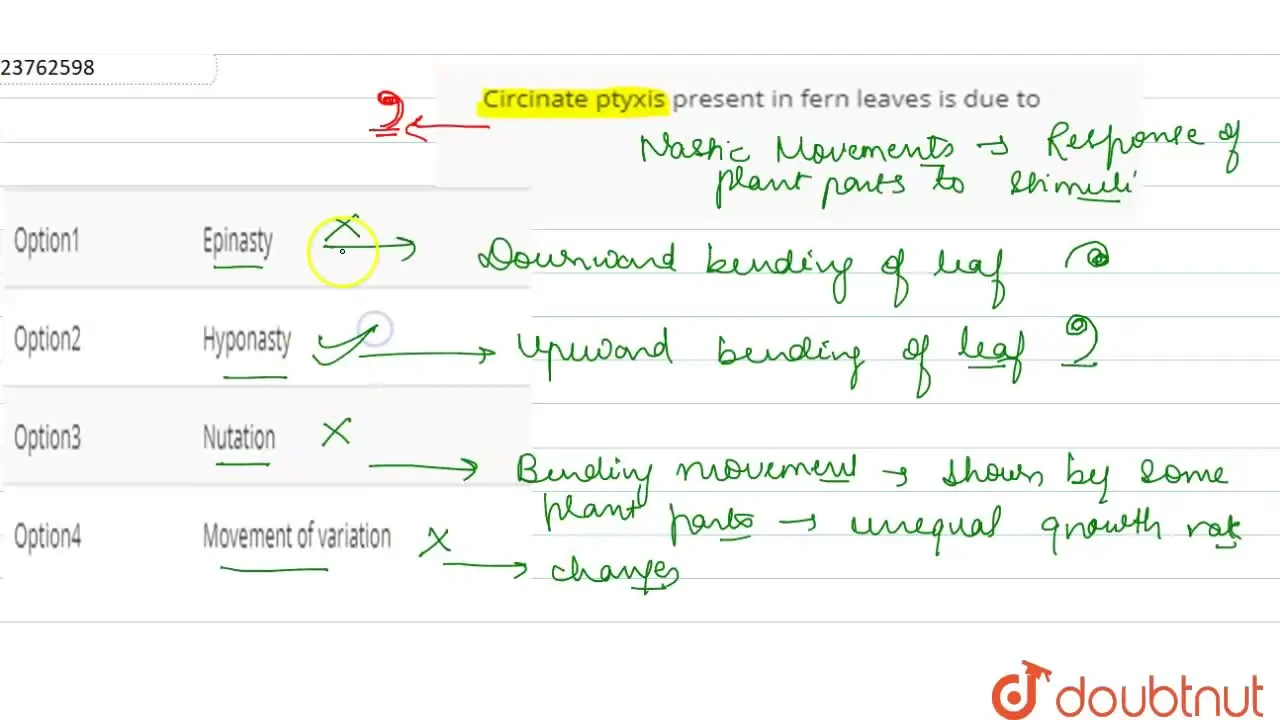 23762598
Circinate ptyxis present in fern leaves is due to
Nastic Movements → Response of
plant parts to stimuli
Option1 Epinasty X → Downward bending of leaf
Option2 Hyponasty ✓ → Upward bending of leaf
Option3 Nutation X
→ Bending movement → shown by some
plant parts → unequal growth rate
Option4 Movement of variation X
→ changes
doubtnut